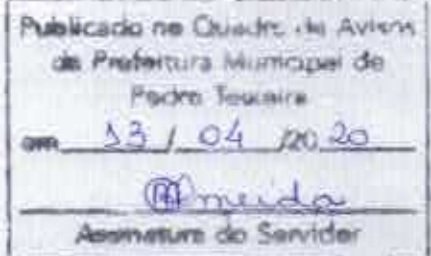 Publicado no Quadro de Avisos
da Prefeitura Municipal de
Pedro Teixeira
em 13 / 04 /20 20
Almeida
Assinatura do Servidor